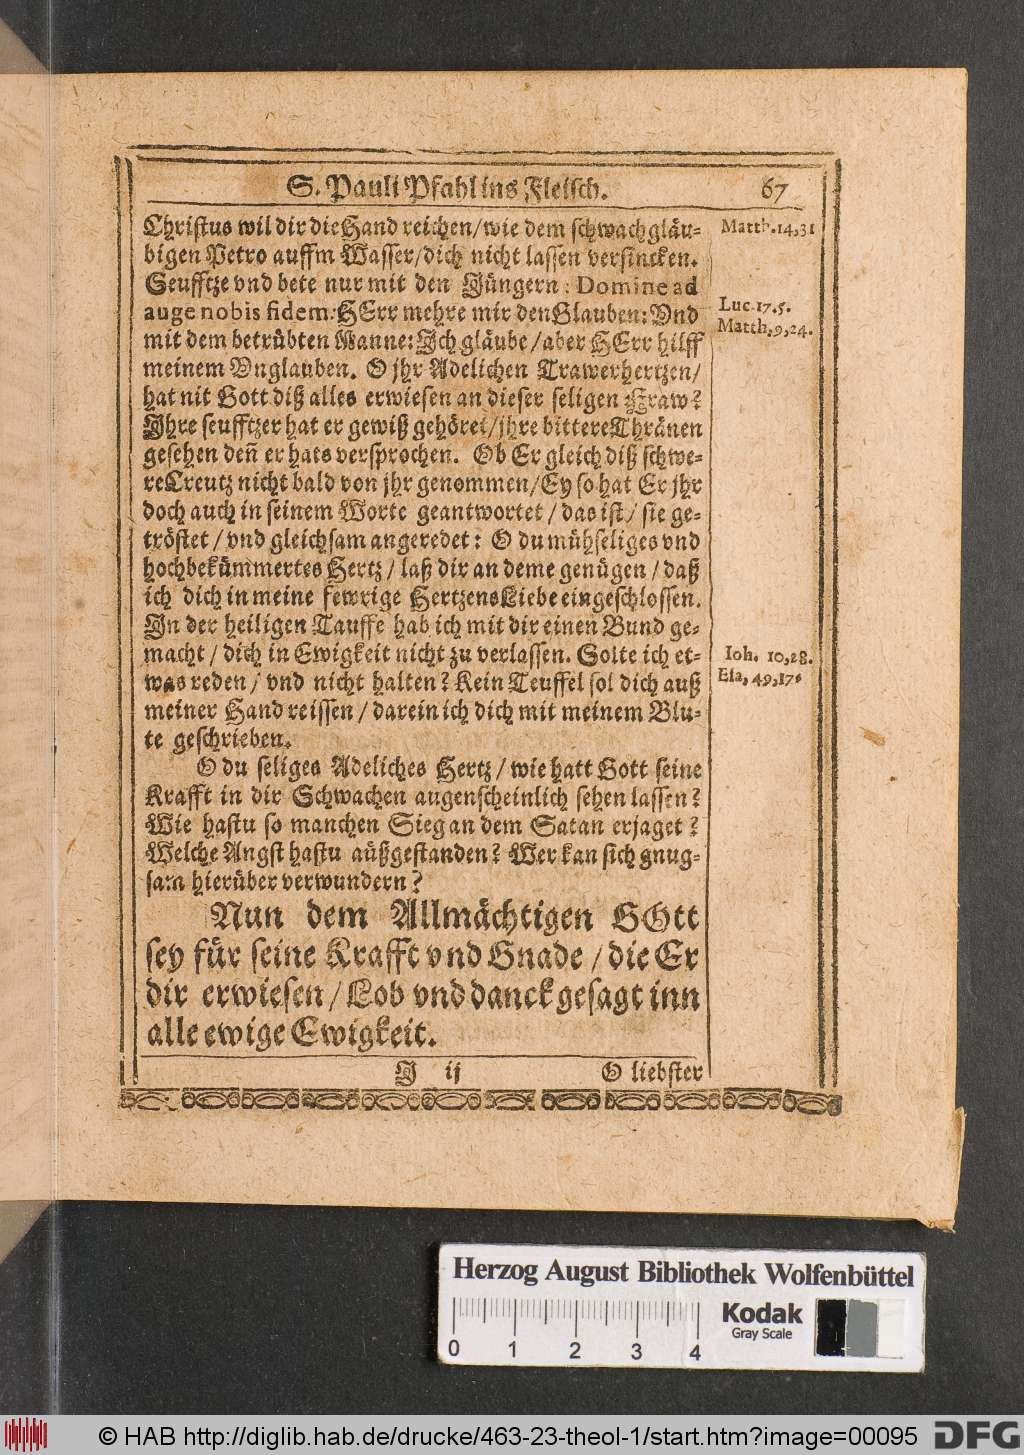 S. Pauli Pfahl ins Fleisch. 67
Christus wil dir die Hand reichen/wie dem schwachgläu- Matth. 14,31
bigen Petro auffm Wasser/dich nicht lassen versincken.
Seufftze vnd bete nur mit den Jüngern: Domine ad
auge nobis fidem: HErr mehre mir den Glauben: Vnd Luc. 17. 5.
mit dem betrübten Manne: Jch gläube/aber HErr hilff Matth, 9, 24.
meinem Vnglauben. O jhr Adelichen Trawerhertzen/
hat nit Gott diß alles erwiesen an dieser seligen Fraw?
Jhre seufftzer hat er gewiß gehöret/jhre bittere Thränen
gesehen deñ er hats versprochen. Ob Er gleich diß schwe-
re Creutz nicht bald von jhr genommen/Ey so hat Er jhr
doch auch in seinem Worte geantwortet/das ist/sie ge-
tröstet/vnd gleichsam angeredet: O du mühseliges vnd
hochbekümmertes Hertz/laß dir an deme genügen/daß
ich dich in meine fewrige Hertzens Liebe eingeschlossen.
Jn der heiligen Tauffe hab ich mit dir einen Bund ge-
macht/dich in Ewigkeit nicht zu verlassen. Solte ich et- Ioh. 10,28.
was reden/vnd nicht halten? Kein Teuffel sol dich auß Esa, 49,17.
meiner Hand reissen/darein ich dich mit meinem Blu-
te geschrieben.
O du seliges Adeliches Hertz/wie hatt Gott seine
Krafft in dir Schwachen augenscheinlich sehen lassen?
Wie hastu so manchen Sieg an dem Satan erjaget?
Welche Angst hastu außgestanden? Wer kan sich gnug-
sam hierüber verwundern?
Nun dem Allmächtigen GOtt
sey für seine Krafft vnd Gnade/die Er
dir erwiesen/Lob vnd danck gesagt inn
alle ewige Ewigkeit.
J ij O liebster
Herzog August Bibliothek Wolfenbüttel
0 1 2 3 4
Kodak
Gray Scale
© HAB http://diglib.hab.de/drucke/463-23-theol-1/start.htm?image=00095 DFG